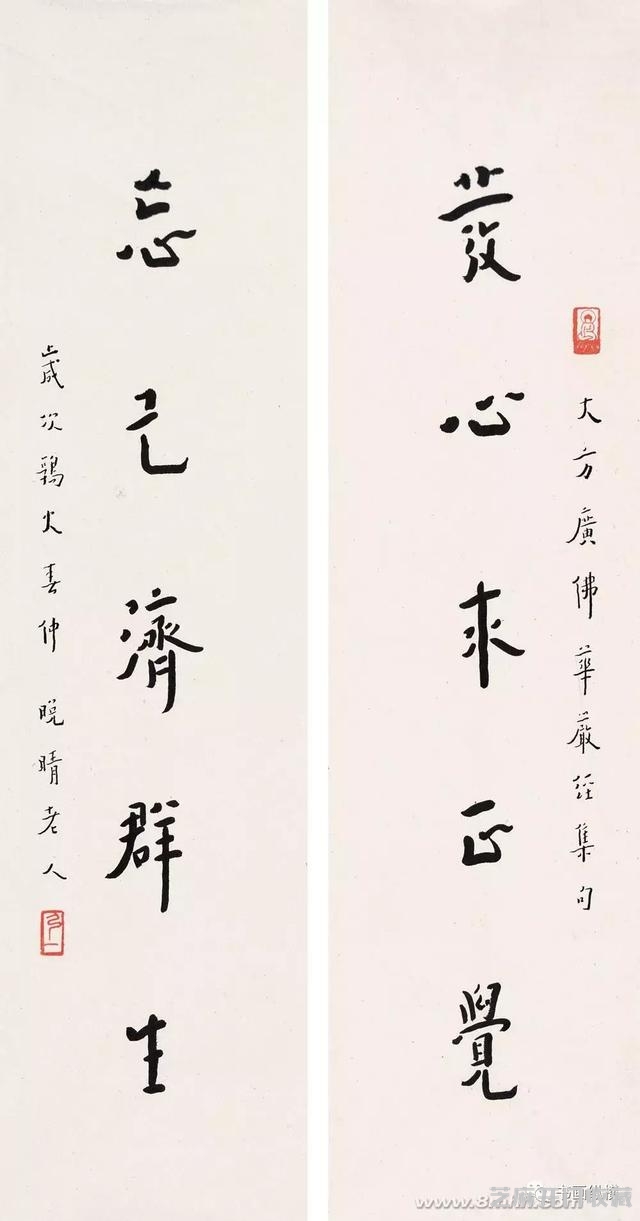 大方廣佛華嚴經集句
發心求正覺
忘己濟群生
歲次鶉火春仲 晚晴老人
弘一
书画纵横